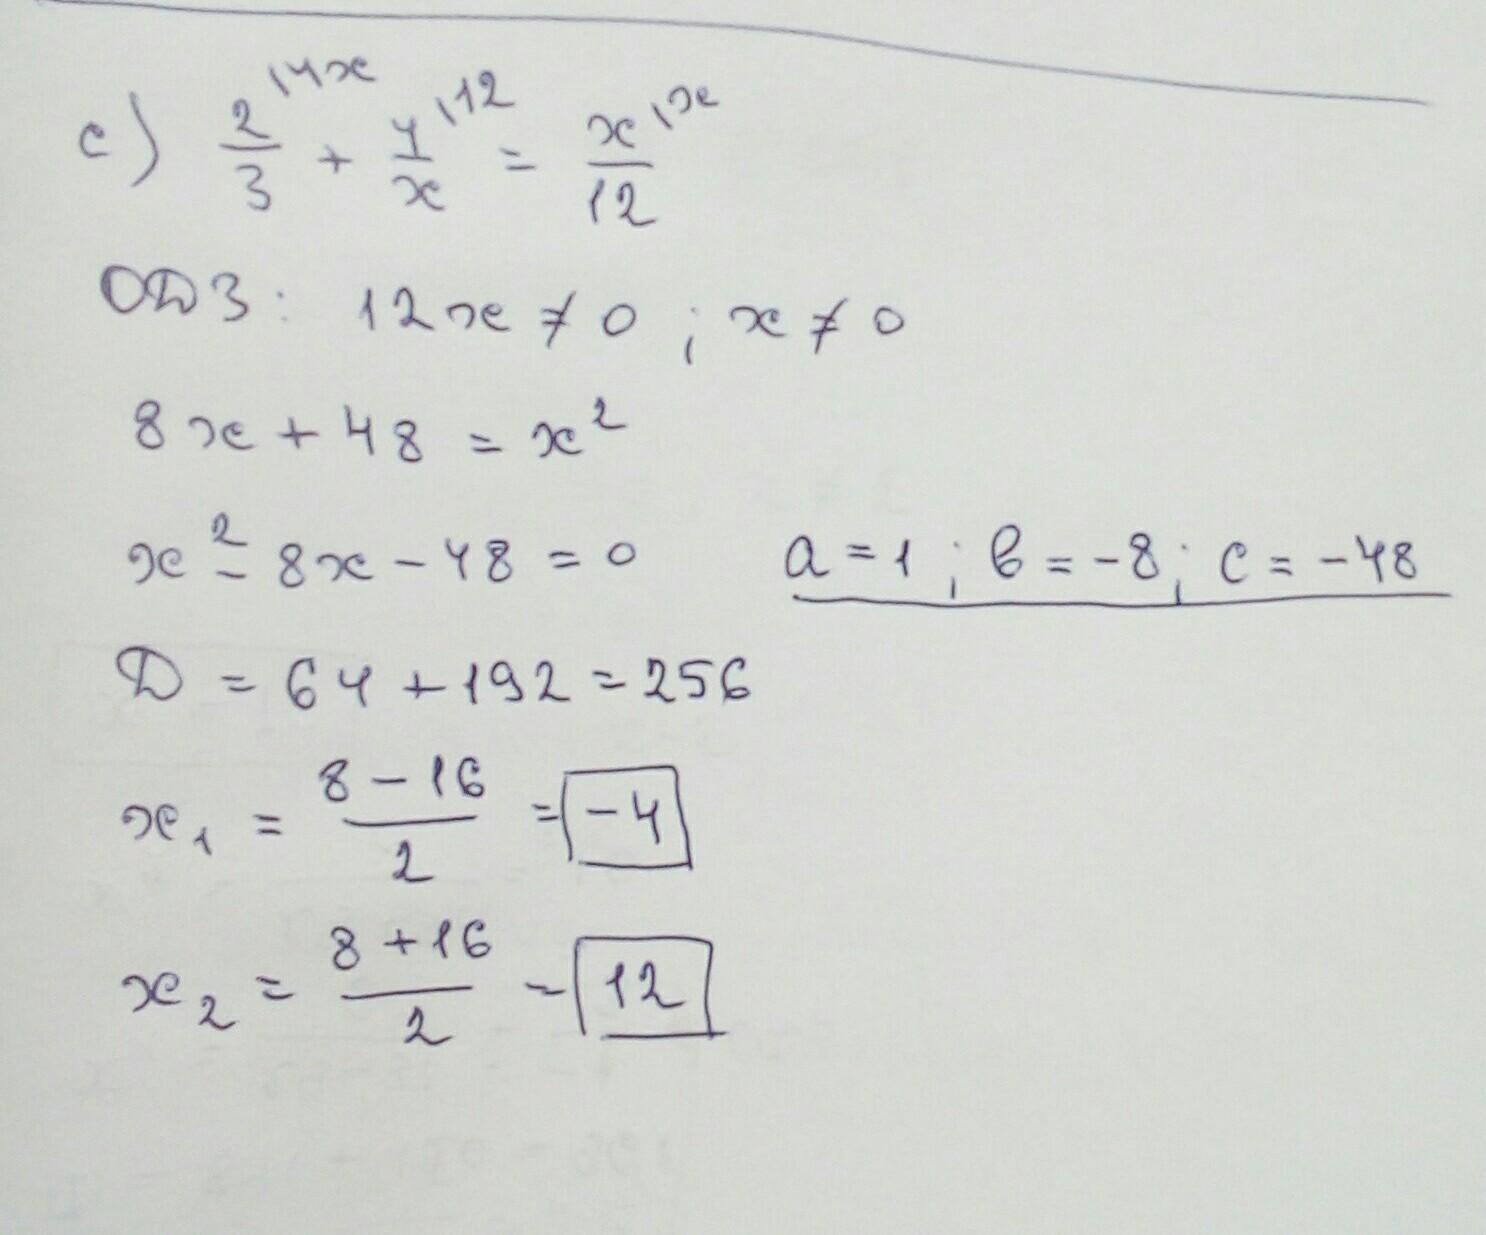 c) 2/3 \4x + 4/x \12 = x/12 \x
ОДЗ: 12x ≠ 0 ; x ≠ 0
8x + 48 = x²
x² - 8x - 48 = 0    a = 1 ; b = -8 ; c = -48
D = 64 + 192 = 256
x₁ = (8 - 16)/2 = -4
x₂ = (8 + 16)/2 = 12